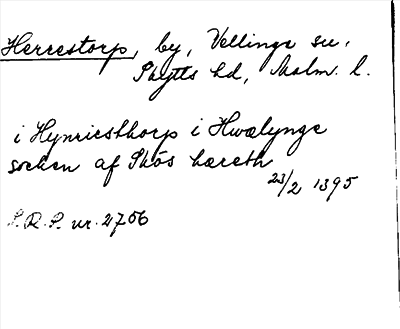 Herrestorp, by, Vellinge sn,
Skytts hd, Malm. l.
i Hynriesthorp i Hwælynge
socken af Skös hæreth
23/2 1395
S.R.P. nr. 2756